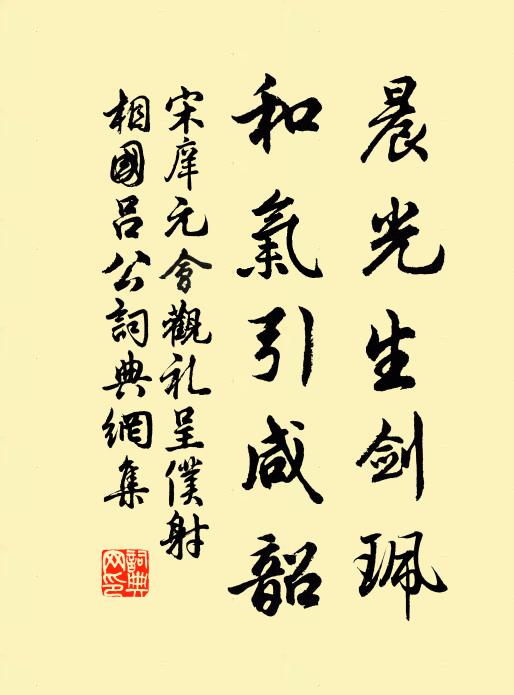 晨光生剑珮
和氣引咸韶
宋庠元會觀礼呈僕射
相國呂公詞典網集
詞典
网印